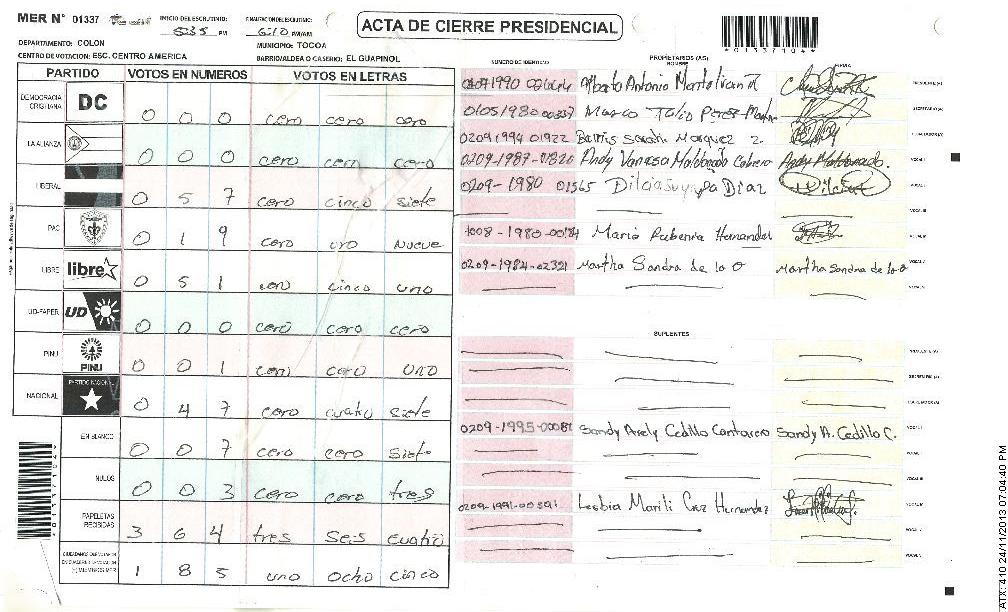 MER N° 01337
INICIO DEL ESCRUTINIO: 535 PM
FINALIZACION DEL ESCRUTINIO: 6:10 PM/AM
ACTA DE CIERRE PRESIDENCIAL
*01337104*
DEPARTAMENTO: COLON
MUNICIPIO: TOCOA
CENTRO DE VOTACION: ESC. CENTRO AMERICA
BARRIO/ALDEA O CASERIO: EL GUAPINOL
PARTIDO VOTOS EN NUMEROS VOTOS EN LETRAS
DEMOCRACIA CRISTIANA DC 0 0 0 cero cero cero
LA ALIANZA 0 0 0 cero cero cero
LIBERAL 0 5 7 cero cinco siete
PAC 0 1 9 cero uno Nueve
LIBRE libre 0 5 1 cero cinco uno
UD-FAPER UD 0 0 0 cero cero cero
PINU PINU 0 0 1 cero cero uno
NACIONAL PARTIDO NACIONAL 0 4 7 cero cuatro siete
EN BLANCO 0 0 7 cero cero siete
NULOS 0 0 3 cero cero tres
PAPELETAS RECIBIDAS 3 6 4 tres seis cuatro
1 8 5 uno ocho cinco
*01337104*
NUMERO DE IDENTIDAD
PROPIETARIOS (AS)
NOMBRE
FIRMA
Alberto Antonio
PRESIDENTE (A)
0105 1980 00337 Marco Tulio
SECRETARIO (A)
0209 1994 01922 Marquez
0209-1987-01820 Andy Vanesa Maldonado Andy Maldonado.
VOCAL I
0209-1980 01565 Dilcia Suyapa Diaz
VOCAL II
VOCAL III
1008-1980-00184 Maria Rubenia Hernandez
VOCAL IV
0209-1984-02321 Martha Sandra de la O Martha Sandra de la O
VOCAL V
SUPLENTES
PRESIDENTE (A)
SECRETARIO (A)
0209-1995-00081 Sandy Arely Cedillo Cantarero Sandy A. Cedillo C.
0209-1991-00591 Lesbia Marili Cruz Hernandez
ATX: 410 24/11/2013 07:04:40 PM